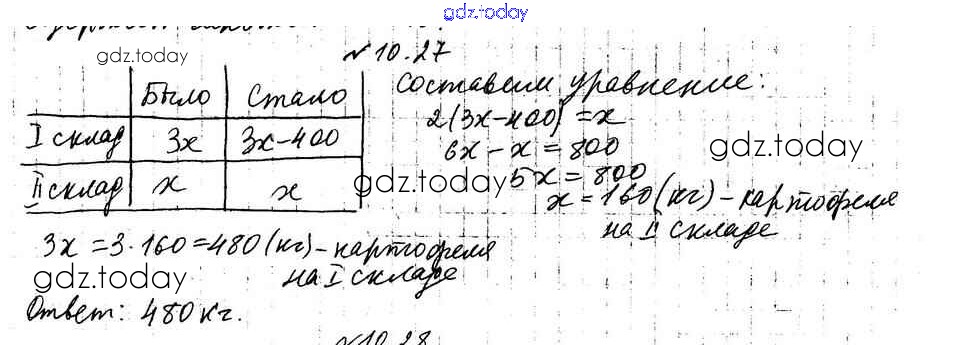 gdz.today
gdz.today
№ 10.27
Было Стало
I склад 3x 3x-400
II склад x x
Составим уравнение:
2(3x-400)=x
6x-x=800
gdz.today
5x=800
gdz.today
x=160(кг)-картофеля
на II складе
3x=3·160=480(кг)-картофеля
на I складе
gdz.today
Ответ: 480кг.
№10.28